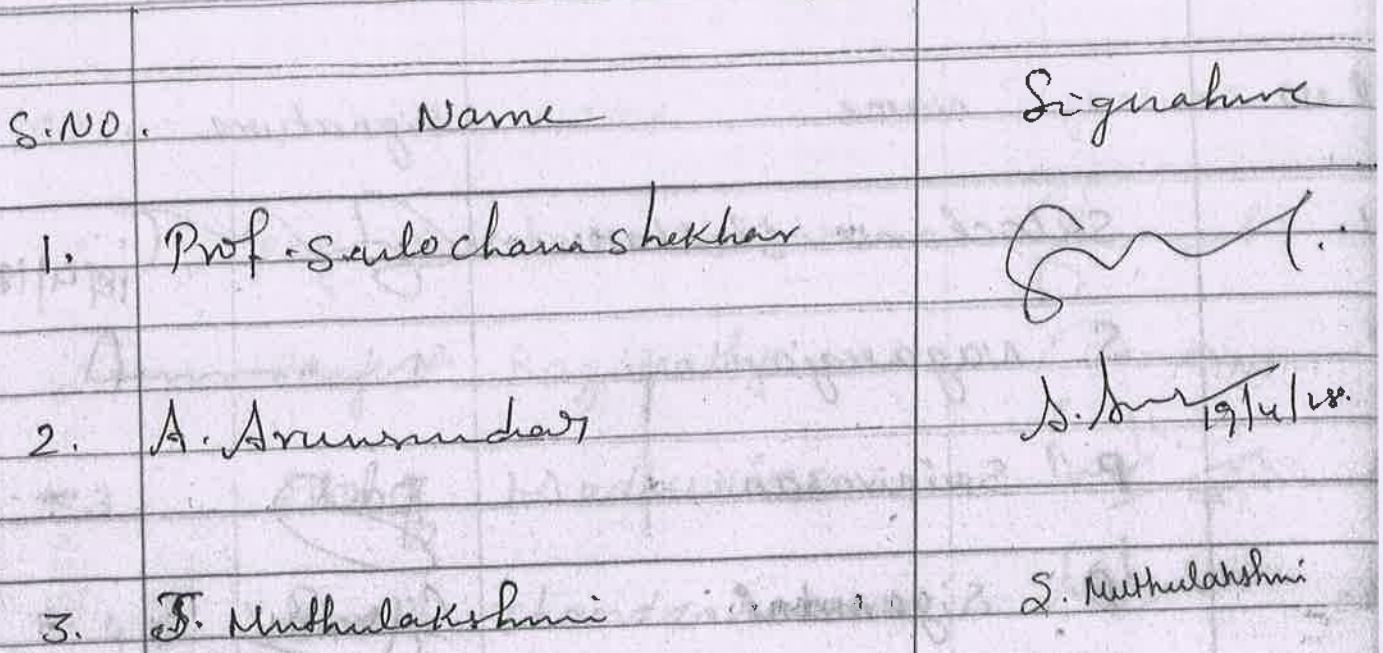 S.NO. Name Signature
1. Prof. Sulochana shekhar
2. A. Arunsundar A. 19/4/18.
3. J. Muthulakshmi S. Muthulakshmi